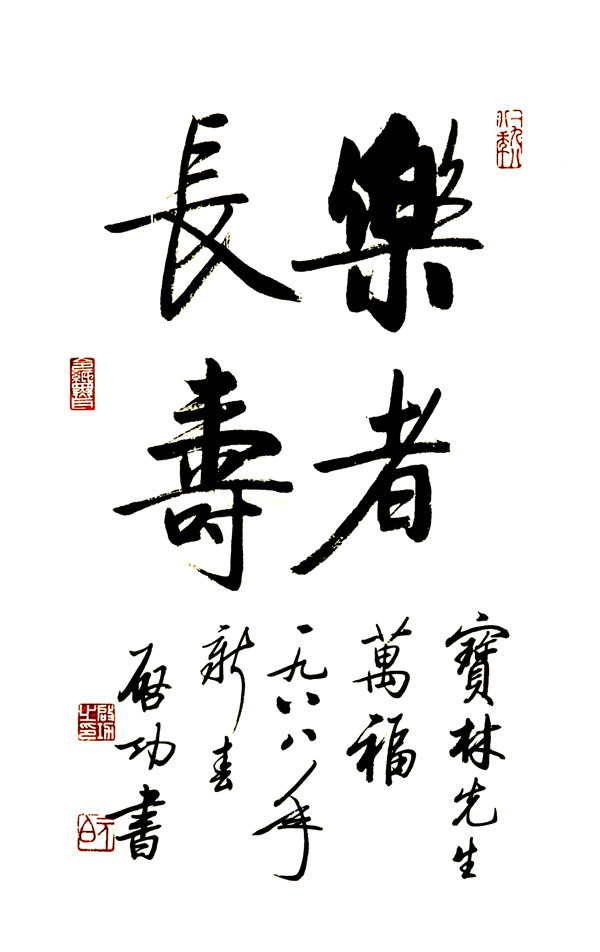 樂者
長壽
寶林先生
萬福
一九八八年
新春
啟功書
啟功之印
元白